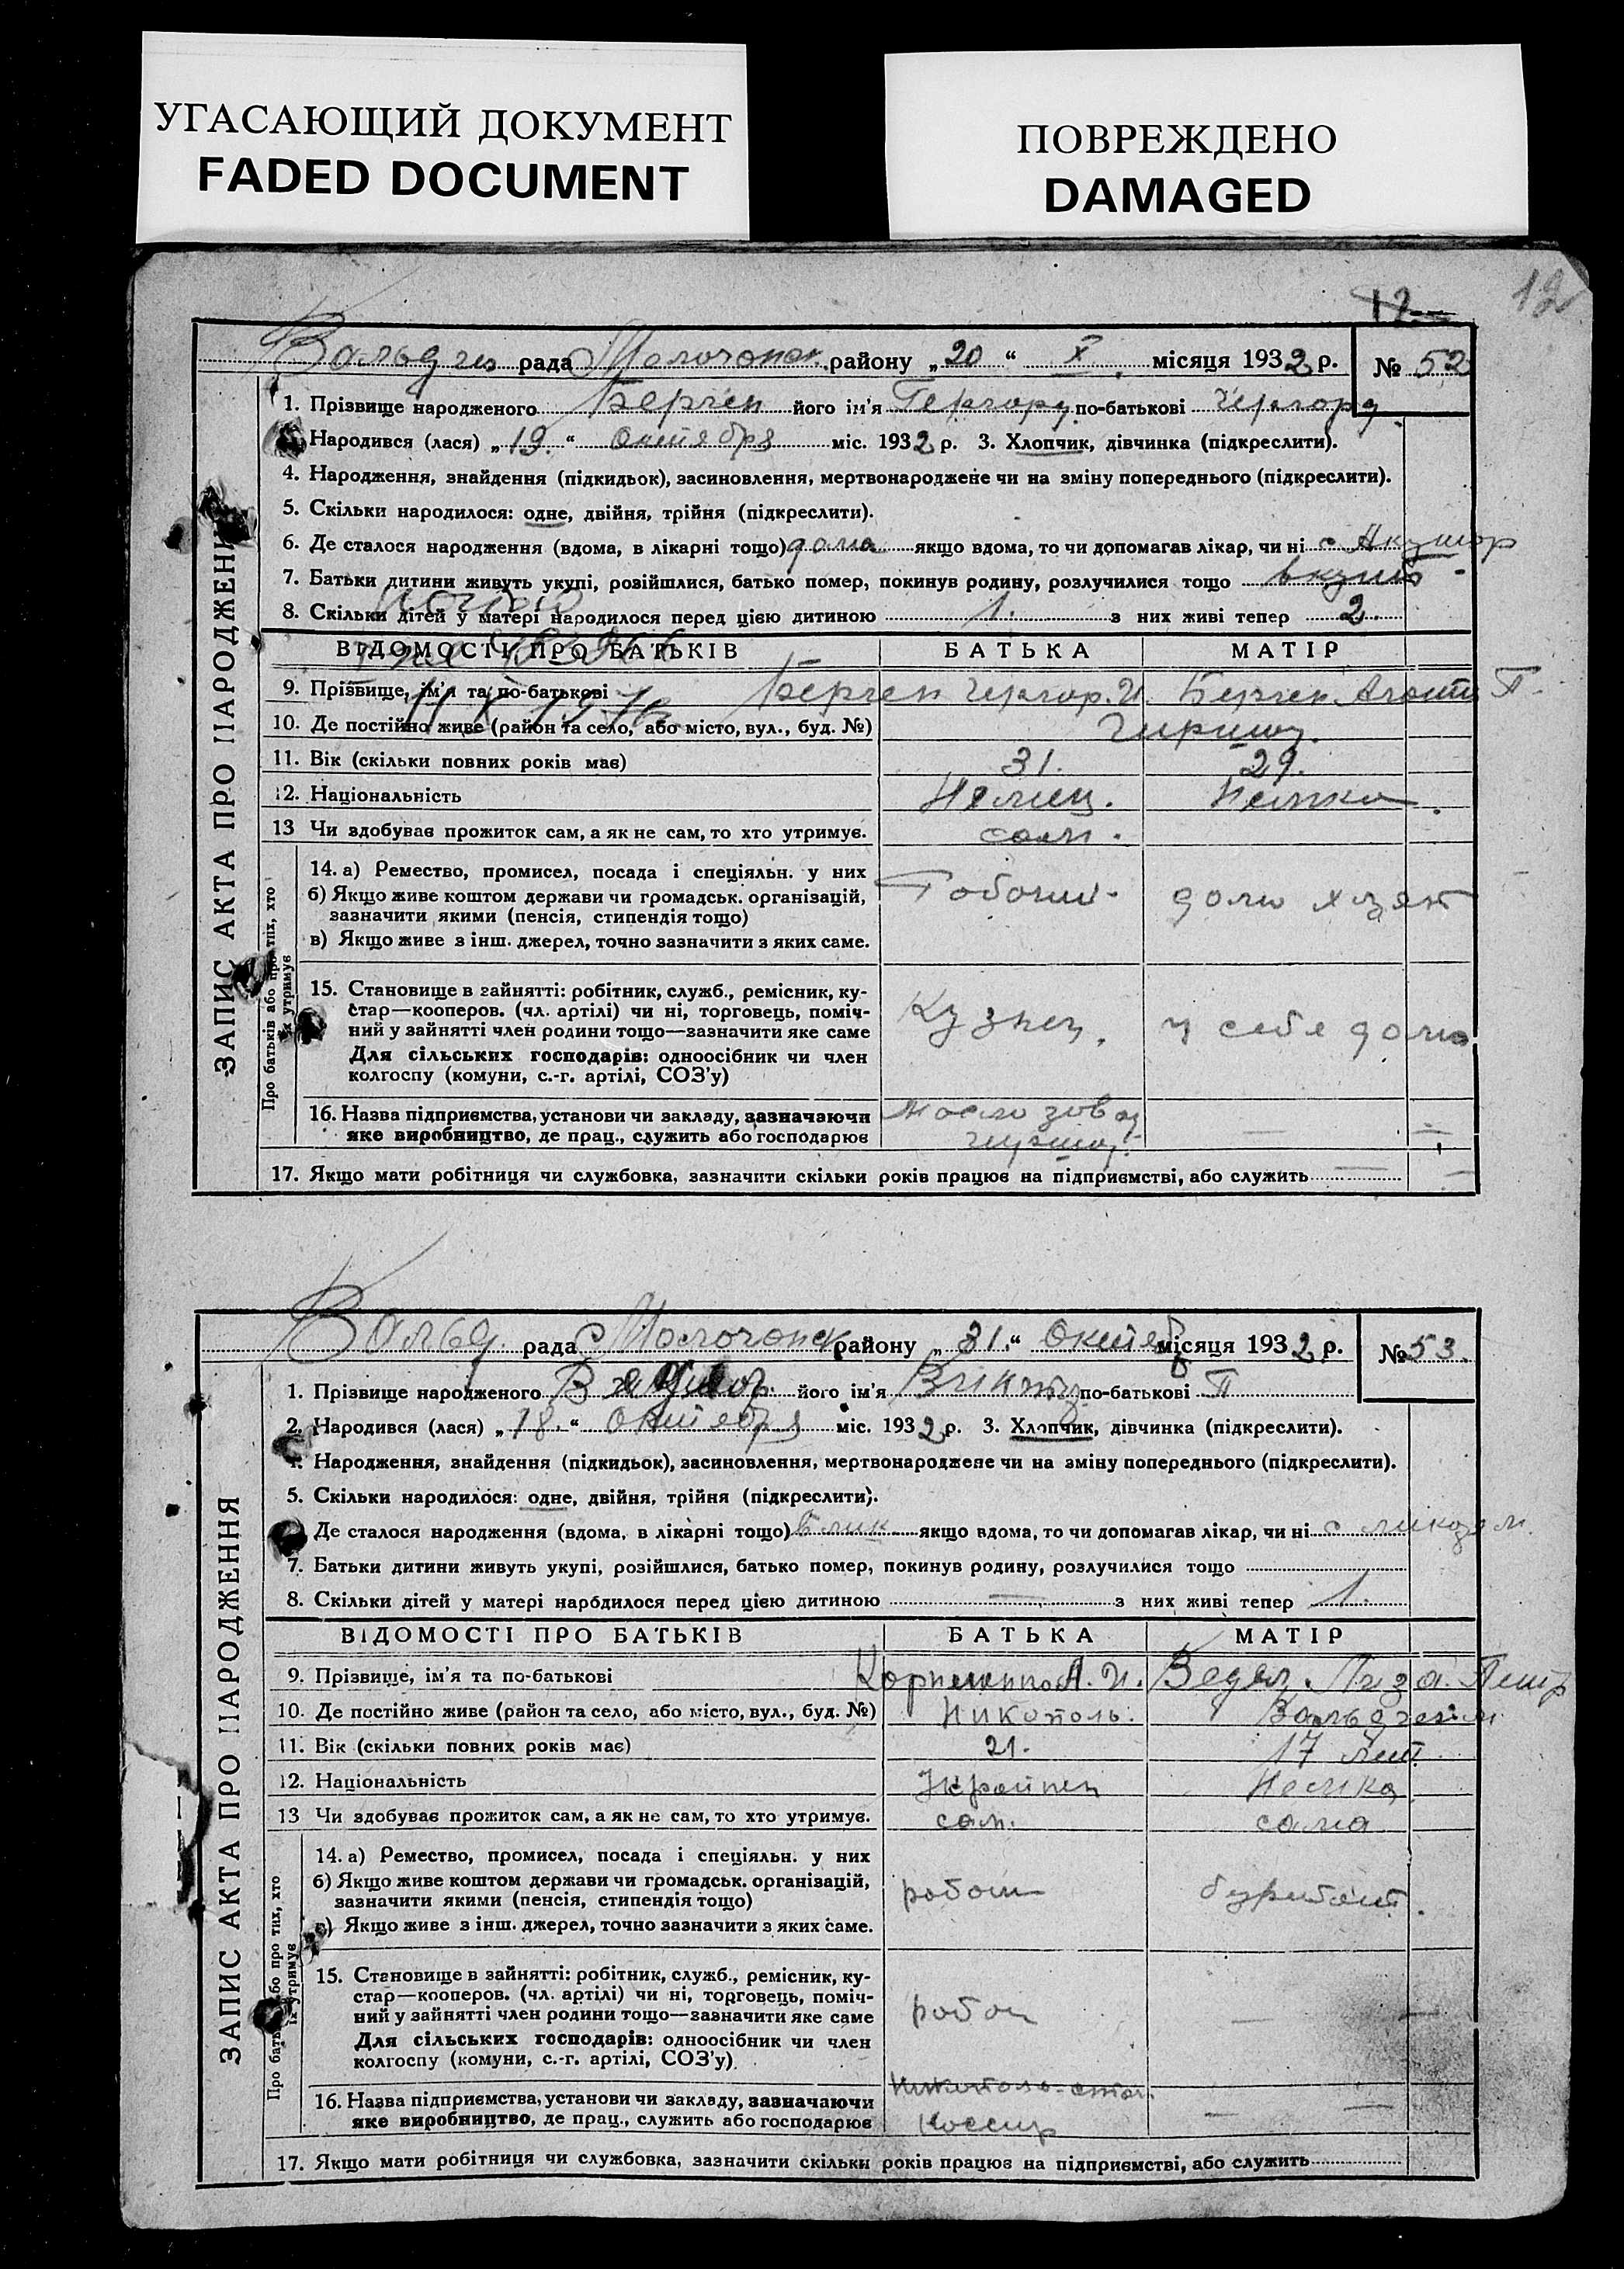 УГАСАЮЩИЙ ДОКУМЕНТ
FADED DOCUMENT
ПОВРЕЖДЕНО
DAMAGED
12
12
ЗАПИС АКТА ПРО НАРОДЖЕННЯ
рада Молочонск. району „20“ X місяця 1932 р. № 52
1. Прізвище народженого Берген його ім'я Гергорд по-батькові Гергорд
Народився (лася) „19.“ Октября міс. 1932 р. 3. Хлопчик, дівчинка (підкреслити).
4. Народження, знайдення (підкидьок), засиновлення, мертвонароджене чи на зміну попереднього (підкреслити).
5. Скільки народилося: одне, двійня, трійня (підкреслити).
6. Де сталося народження (вдома, в лікарні тощо) дома якщо вдома, то чи допомагав лікар, чи ні с Акушор
7. Батьки дитини живуть укупі, розійшлися, батько помер, покинув родину, розлучилися тощо
8. Скільки дітей у матері народилося перед цією дитиною 1. з них живі тепер 2.
ВІДОМОСТІ ПРО БАТЬКІВ БАТЬКА МАТІР
9. Прізвище, ім'я та по-батькові Берген Гергор. И. Берген П.
10. Де постійно живе (район та село, або місто, вул., буд. №)
11. Вік (скільки повних років має) 31. 29.
12. Національність Немец. Немка.
13 Чи здобуває прожиток сам, а як не сам, то хто утримує. сам.
Про батьків або про тих, хто їх утримує
14. а) Ремество, промисел, посада і спеціяльн. у них
б) Якщо живе коштом держави чи громадськ. організацій,
зазначити якими (пенсія, стипендія тощо)
в) Якщо живе з інш. джерел, точно зазначити з яких саме.
15. Становище в зайнятті: робітник, служб., ремісник, ку-
стар—кооперов. (чл. артілі) чи ні, торговець, поміч-
ний у зайнятті член родини тощо—зазначити яке саме
Для сільських господарів: одноосібник чи член
колгоспу (комуни, с.-г. артілі, СОЗ'у)
Кузнец. у себе дома
16. Назва підприємства, установи чи закладу, зазначаючи
яке виробництво, де прац., служить або господарює
17. Якщо мати робітниця чи службовка, зазначити скільки років працює на підприємстві, або служить
ЗАПИС АКТА ПРО НАРОДЖЕННЯ
Вальд. рада Молочонск району „31.“ Октяб місяця 1932 р. № 53.
1. Прізвище народженого його ім'я по-батькові П
2. Народився (лася) „18.“ Октября міс. 1932 р. 3. Хлопчик, дівчинка (підкреслити).
4. Народження, знайдення (підкидьок), засиновлення, мертвонароджене чи на зміну попереднього (підкреслити).
5. Скільки народилося: одне, двійня, трійня (підкреслити).
Де сталося народження (вдома, в лікарні тощо) якщо вдома, то чи допомагав лікар, чи ні
7. Батьки дитини живуть укупі, розійшлися, батько помер, покинув родину, розлучилися тощо
8. Скільки дітей у матері народилося перед цією дитиною — з них живі тепер 1.
ВІДОМОСТІ ПРО БАТЬКІВ БАТЬКА МАТІР
9. Прізвище, ім'я та по-батькові А. И. Лиза. Петр
10. Де постійно живе (район та село, або місто, вул., буд. №) Никополь.
11. Вік (скільки повних років має) 21. 17 лет
12. Національність Украинец Немка
13 Чи здобуває прожиток сам, а як не сам, то хто утримує. сам. сама
Про батьків або про тих, хто їх утримує
14. а) Ремество, промисел, посада і спеціяльн. у них
б) Якщо живе коштом держави чи громадськ. організацій,
зазначити якими (пенсія, стипендія тощо)
в) Якщо живе з інш. джерел, точно зазначити з яких саме.
15. Становище в зайнятті: робітник, служб., ремісник, ку-
стар—кооперов. (чл. артілі) чи ні, торговець, поміч-
ний у зайнятті член родини тощо—зазначити яке саме
Для сільських господарів: одноосібник чи член
колгоспу (комуни, с.-г. артілі, СОЗ'у)
16. Назва підприємства, установи чи закладу, зазначаючи
яке виробництво, де прац., служить або господарює
17. Якщо мати робітниця чи службовка, зазначити скільки років працює на підприємстві, або служить